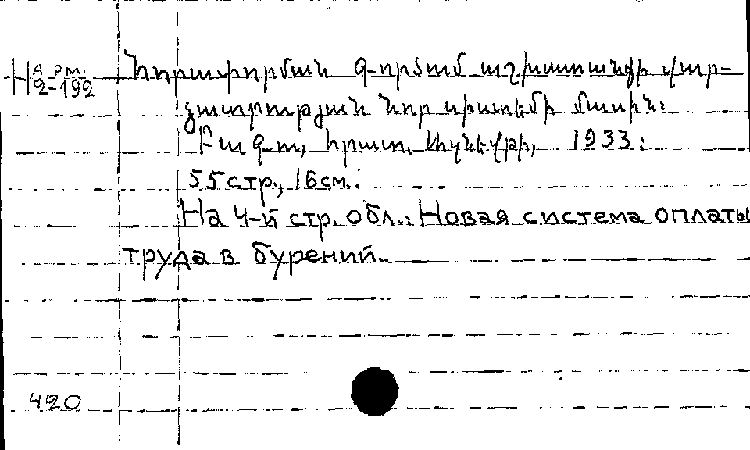 Н арм. 2-192 Հորատիորման գործում աշխատանքի վար-
ձատրության նոր սիստեմի մասին:
Բաքու, հրատ. Ազնեֆթի, 1933:
55 стр., 16 см.
На 4-й стр. обл.: Новая система оплаты
труда в бурений.
420